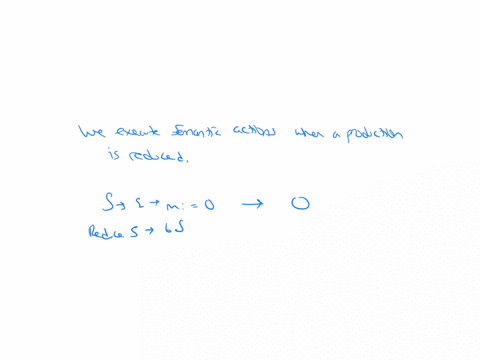 We execute semantic actions when a production
is reduced.
S → ε → m := 0 → 0
Reduce S → bS